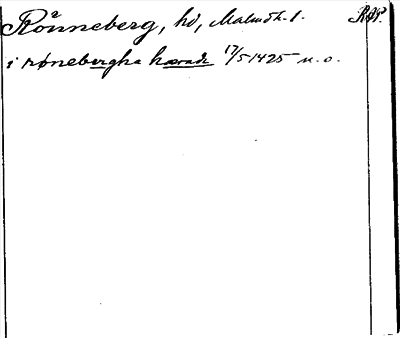 Rönneberg, hd, Malmöh. l. RAP.
i rønebergha hærade 17/5 1425 n. o.